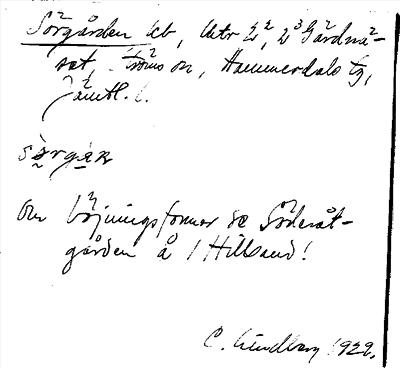 Sörgården lb, litr 2², 2³ Gårdnä-
set, Ströms sn, Hammerdals tg,
Jämtl. l.
sörgán
Om böjningsformer se Söderåt-
gården å 1 Hillsand!
C. Lindberg 1929.